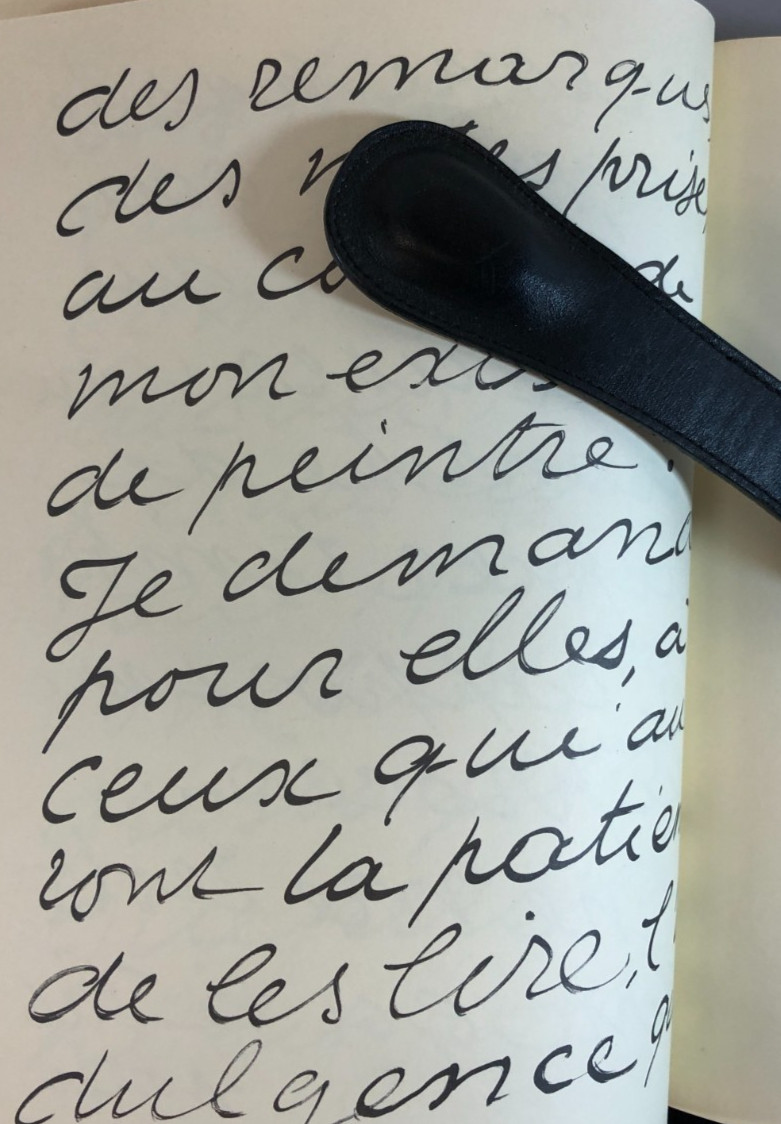 des remarques
des notes prises
au de
mon
de peintre.
Je demand
pour elles, à
ceux qui au
ront la patien
de les lire, l'
dulgence